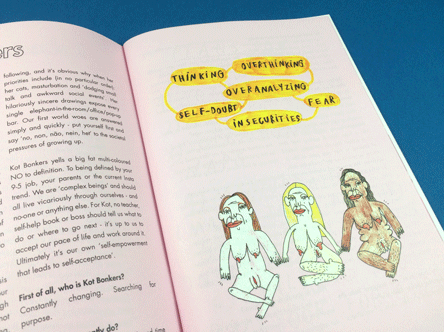 ers
following, and it's obvious why when her
priorities include (in no particular order)
her cats, masturbation and 'dodging small
talk and awkward social events'. Her
hilariously sincere drawings expose every
single elephant-in-the-room/office/pop-up
bar. Our first world woes are answered
simply and quickly - put yourself first and
say 'no, non, não, nein, he' to the societal
pressures of growing up.
Kot Bonkers yells a big fat multi-coloured
NO to definition. To being defined by your
9-5 job, your parents or the current Insta
trend. We are 'complex beings' and should
all live vicariously through ourselves - and
no-one or anything else. For Kot, no teacher,
self-help book or boss should tell us what to
do or where to go next - it's up to us to
accept our pace of life and work around it.
Ultimately it's our own 'self-empowerment
that leads to self-acceptance'.
First of all, who is Kot Bonkers?
Constantly changing. Searching for
purpose.
THINKING
OVERTHINKING
OVERANALYZING
SELF-DOUBT
FEAR
INSECURITIES